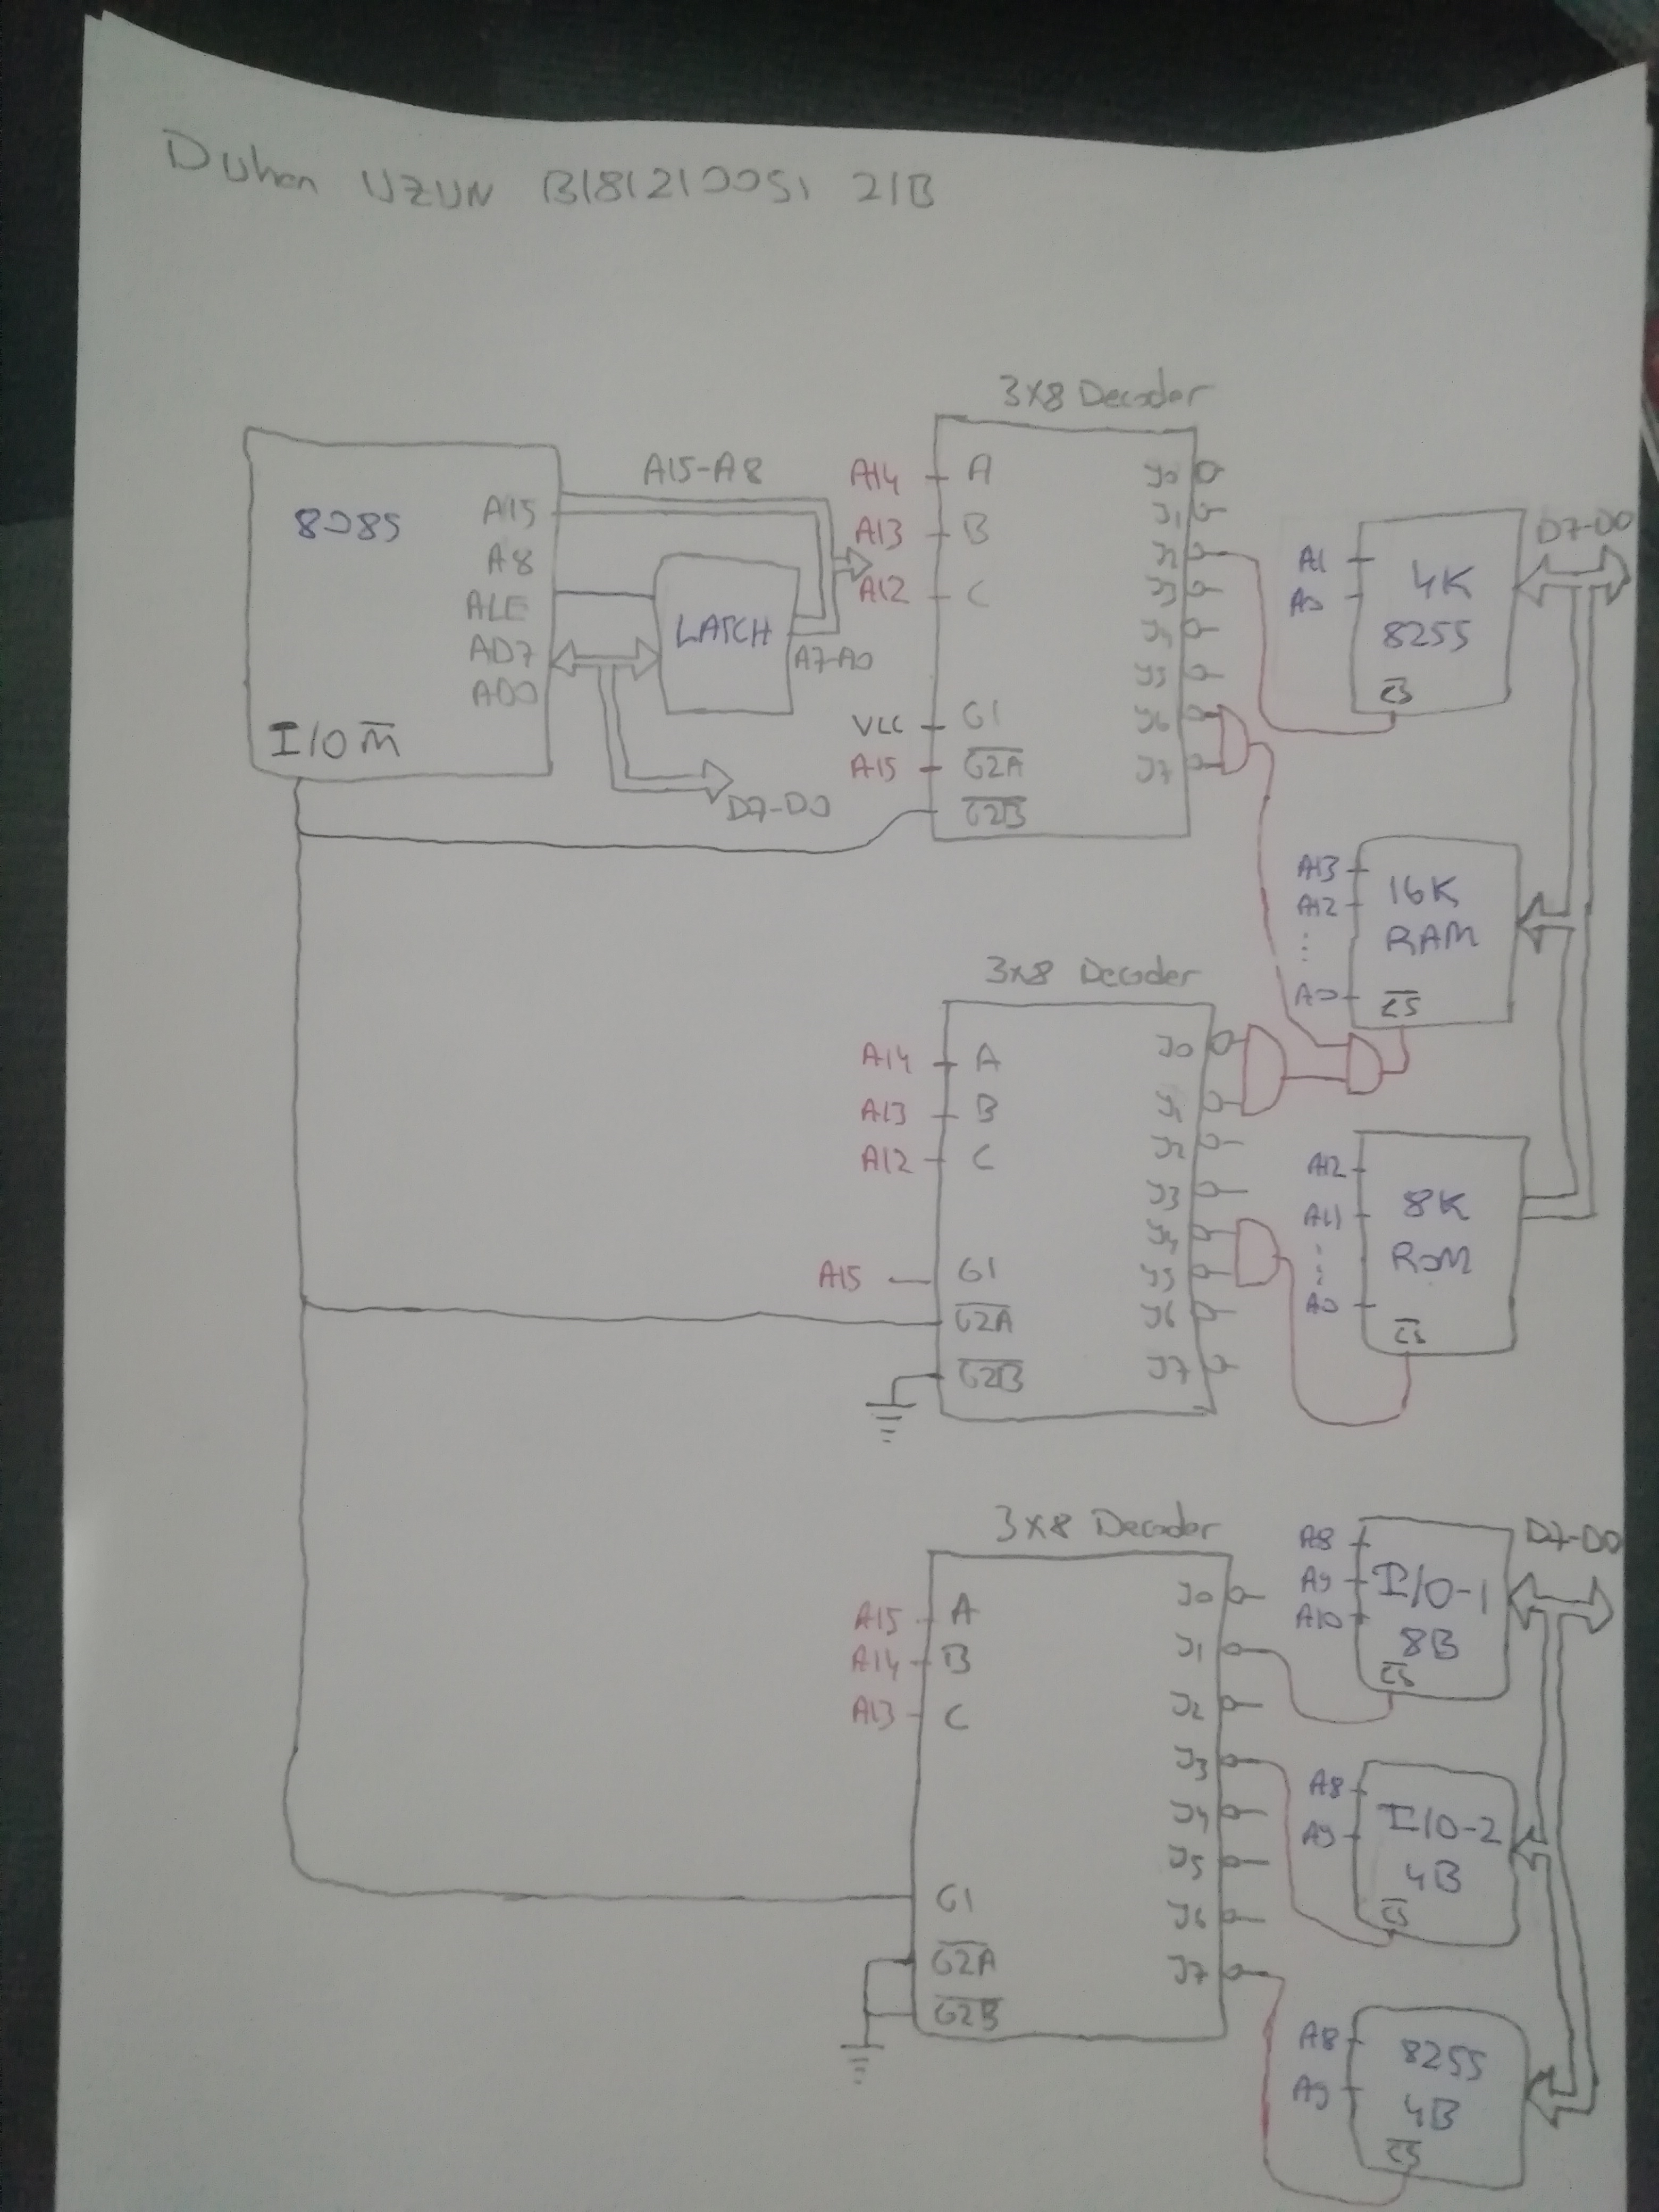 Duhan UZUN B181210051 2/B
3x8 Decoder
8085
A15
A8
ALE
AD7
AD0
I/O M̅
A15-A8
LATCH
A7-A0
D7-D0
A14 A
A13 B
A12 C
VCC G1
A15 G̅2̅A̅
G̅2̅B̅
Y0
Y1
Y2
Y3
Y4
Y5
Y6
Y7
A1
A0
4K
8255
C̅S̅
D7-D0
A13
A12
A0
16K
RAM
C̅S̅
3x8 Decoder
A14 A
A13 B
A12 C
A15 G1
G̅2̅A̅
G̅2̅B̅
Y0
Y1
Y2
Y3
Y4
Y5
Y6
Y7
A12
A11
A0
8K
ROM
C̅S̅
3x8 Decoder
A15 A
A14 B
A13 C
G1
G̅2̅A̅
G̅2̅B̅
Y0
Y1
Y2
Y3
Y4
Y5
Y6
Y7
A8
A9
A10
I/O-1
8B
C̅S̅
D7-D0
A8
A9
I/O-2
4B
C̅S̅
A8
A9
8255
4B
C̅S̅